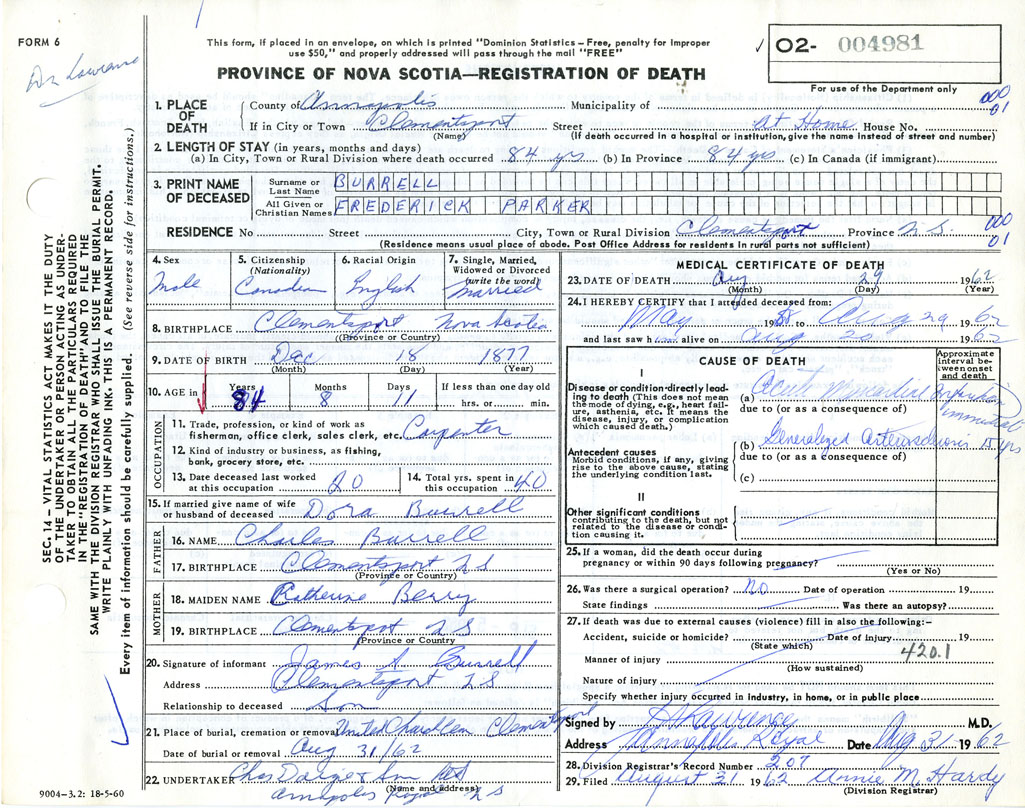 FORM 6
Dr Lawrence
This form, if placed in an envelope, on which is printed "Dominion Statistics – Free, penalty for improper
use $50," and properly addressed will pass through the mail "FREE"
✓ 02- 004981
For use of the Department only
PROVINCE OF NOVA SCOTIA—REGISTRATION OF DEATH
000
01
1. PLACE OF DEATH
County of Annapolis Municipality of
If in City or Town Clementsport Street At Home House No.
(Name) (If death occurred in a hospital or institution, give the name instead of street and number)
2. LENGTH OF STAY (in years, months and days)
(a) In City, Town or Rural Division where death occurred 84 yrs (b) In Province 84 yrs (c) In Canada (if immigrant)
3. PRINT NAME OF DECEASED
Surname or Last Name BURRELL
All Given or Christian Names FREDERICK PARKER
RESIDENCE No Street City, Town or Rural Division Clementsport Province N.S.
000
01
(Residence means usual place of abode. Post Office Address for residents in rural parts not sufficient)
4. Sex Male
5. Citizenship (Nationality) Canadian
6. Racial Origin English
7. Single, Married, Widowed or Divorced (write the word) Married
8. BIRTHPLACE Clementsport Nova Scotia
(Province or Country)
9. DATE OF BIRTH Dec 18 1877
(Month) (Day) (Year)
10. AGE in Years 84 Months 8 Days 11 If less than one day old hrs. or min.
OCCUPATION
11. Trade, profession, or kind of work as
fisherman, office clerk, sales clerk, etc. Carpenter
12. Kind of industry or business, as fishing,
bank, grocery store, etc.
13. Date deceased last worked at this occupation 20
14. Total yrs. spent in this occupation 40
15. If married give name of wife
or husband of deceased Dora Burrell
FATHER
16. NAME Charles Burrell
17. BIRTHPLACE Clementsport N S
(Province or Country)
MOTHER
18. MAIDEN NAME Catherine Berry
19. BIRTHPLACE Clementsport N S
(Province or Country
20. Signature of informant James A. Burrell
Address Clementsport N S
Relationship to deceased Son
21. Place of burial, cremation or removal United Church Cem Clementsport
Date of burial or removal Aug 31/62
22. UNDERTAKER Chas & Son
Annapolis Royal N S
(Name and address)
MEDICAL CERTIFICATE OF DEATH
23. DATE OF DEATH Aug 29 1962
(Month) (Day) (Year)
24. I HEREBY CERTIFY that I attended deceased from:
May 19 to Aug 29 1962
and last saw h alive on Aug 1962
CAUSE OF DEATH
Approximate interval between onset and death
I
Disease or condition directly leading to death (This does not mean
the mode of dying, e.g., heart failure, asthenia, etc. It means the
disease, injury, or complication
which caused death.)
(a) Acute Myocardial Infarction immediate
due to (or as a consequence of)
Antecedent causes
Morbid conditions, if any, giving
rise to the above cause, stating
the underlying condition last.
(b) Generalized Arteriosclerosis 15 yrs
due to (or as a consequence of)
(c)
II
Other significant conditions
contributing to the death, but not
related to the disease or condition causing it.
25. If a woman, did the death occur during
pregnancy or within 90 days following pregnancy?
(Yes or No)
26. Was there a surgical operation? No Date of operation 19
State findings Was there an autopsy?
27. If death was due to external causes (violence) fill in also the following:–
Accident, suicide or homicide? Date of injury 19
(State which)
420.1
Manner of injury
(How sustained)
Nature of injury
Specify whether injury occurred in industry, in home, or in public place
Signed by Lawrence M.D.
Address Annapolis Royal Date Aug 31 1962
28. Division Registrar's Record Number 207
29. Filed August 31 1962 Annie M. Hardy
(Division Registrar)
SEC. 14 – VITAL STATISTICS ACT MAKES IT THE DUTY
OF THE UNDERTAKER OR PERSON ACTING AS UNDER-
TAKER TO OBTAIN ALL THE PARTICULARS REQUIRED
IN THE "REGISTRATION OF DEATH" AND TO FILE THE
SAME WITH THE DIVISION REGISTRAR WHO SHALL ISSUE THE BURIAL PERMIT.
WRITE PLAINLY WITH UNFADING INK. THIS IS A PERMANENT RECORD.
Every item of information should be carefully supplied. (See reverse side for instructions.)
9004–3.2: 18-5-60